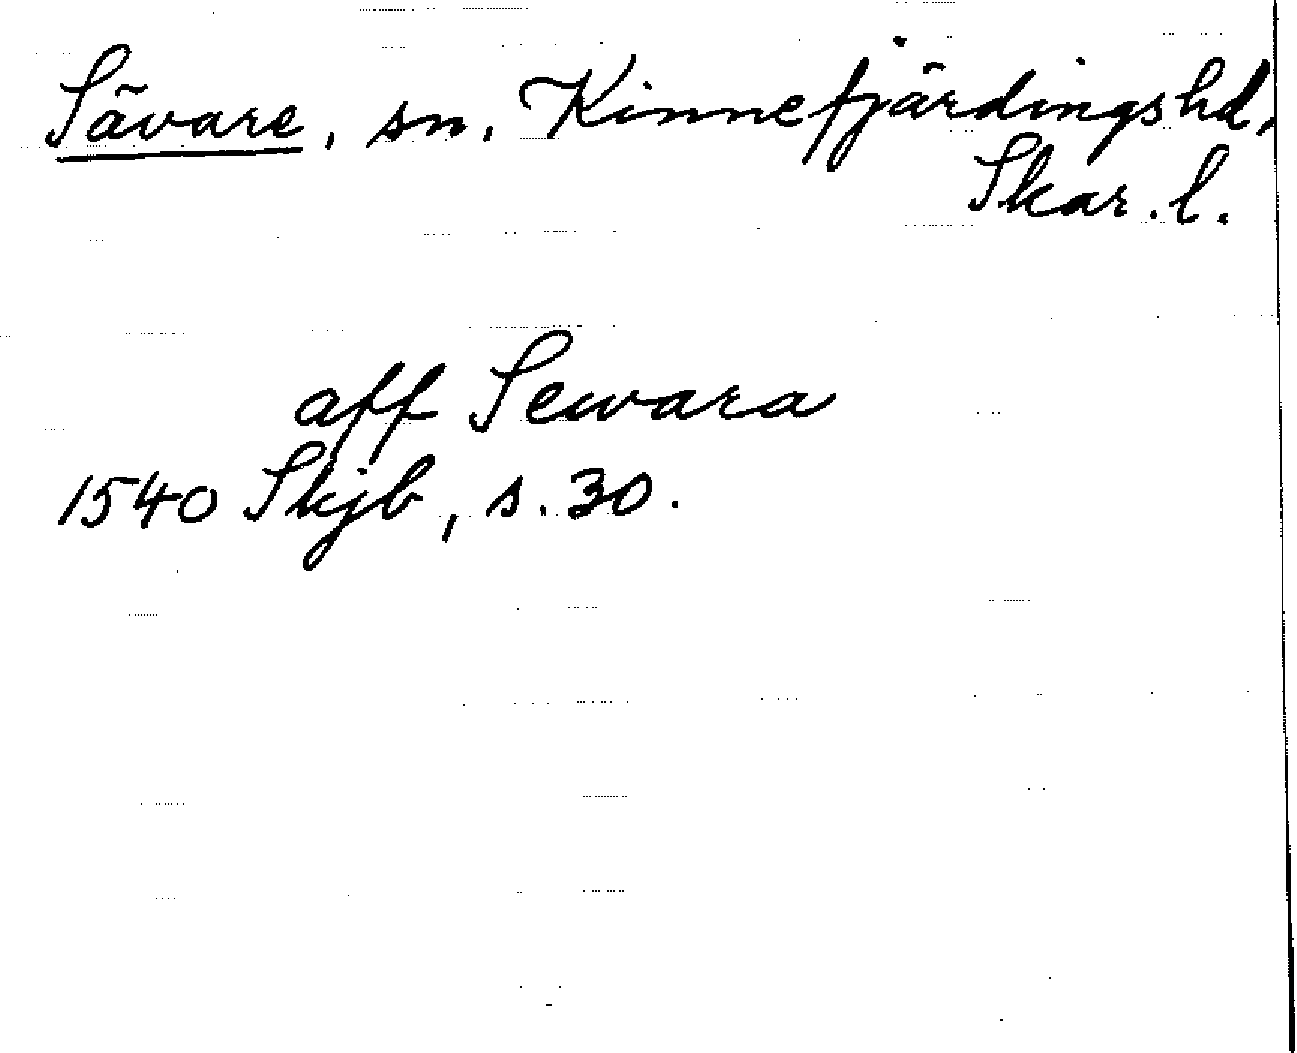 Sävare, sn, Kinnefjärdingshd,
Skar. l.
aff Sewara
1540 Skjb, s. 30.